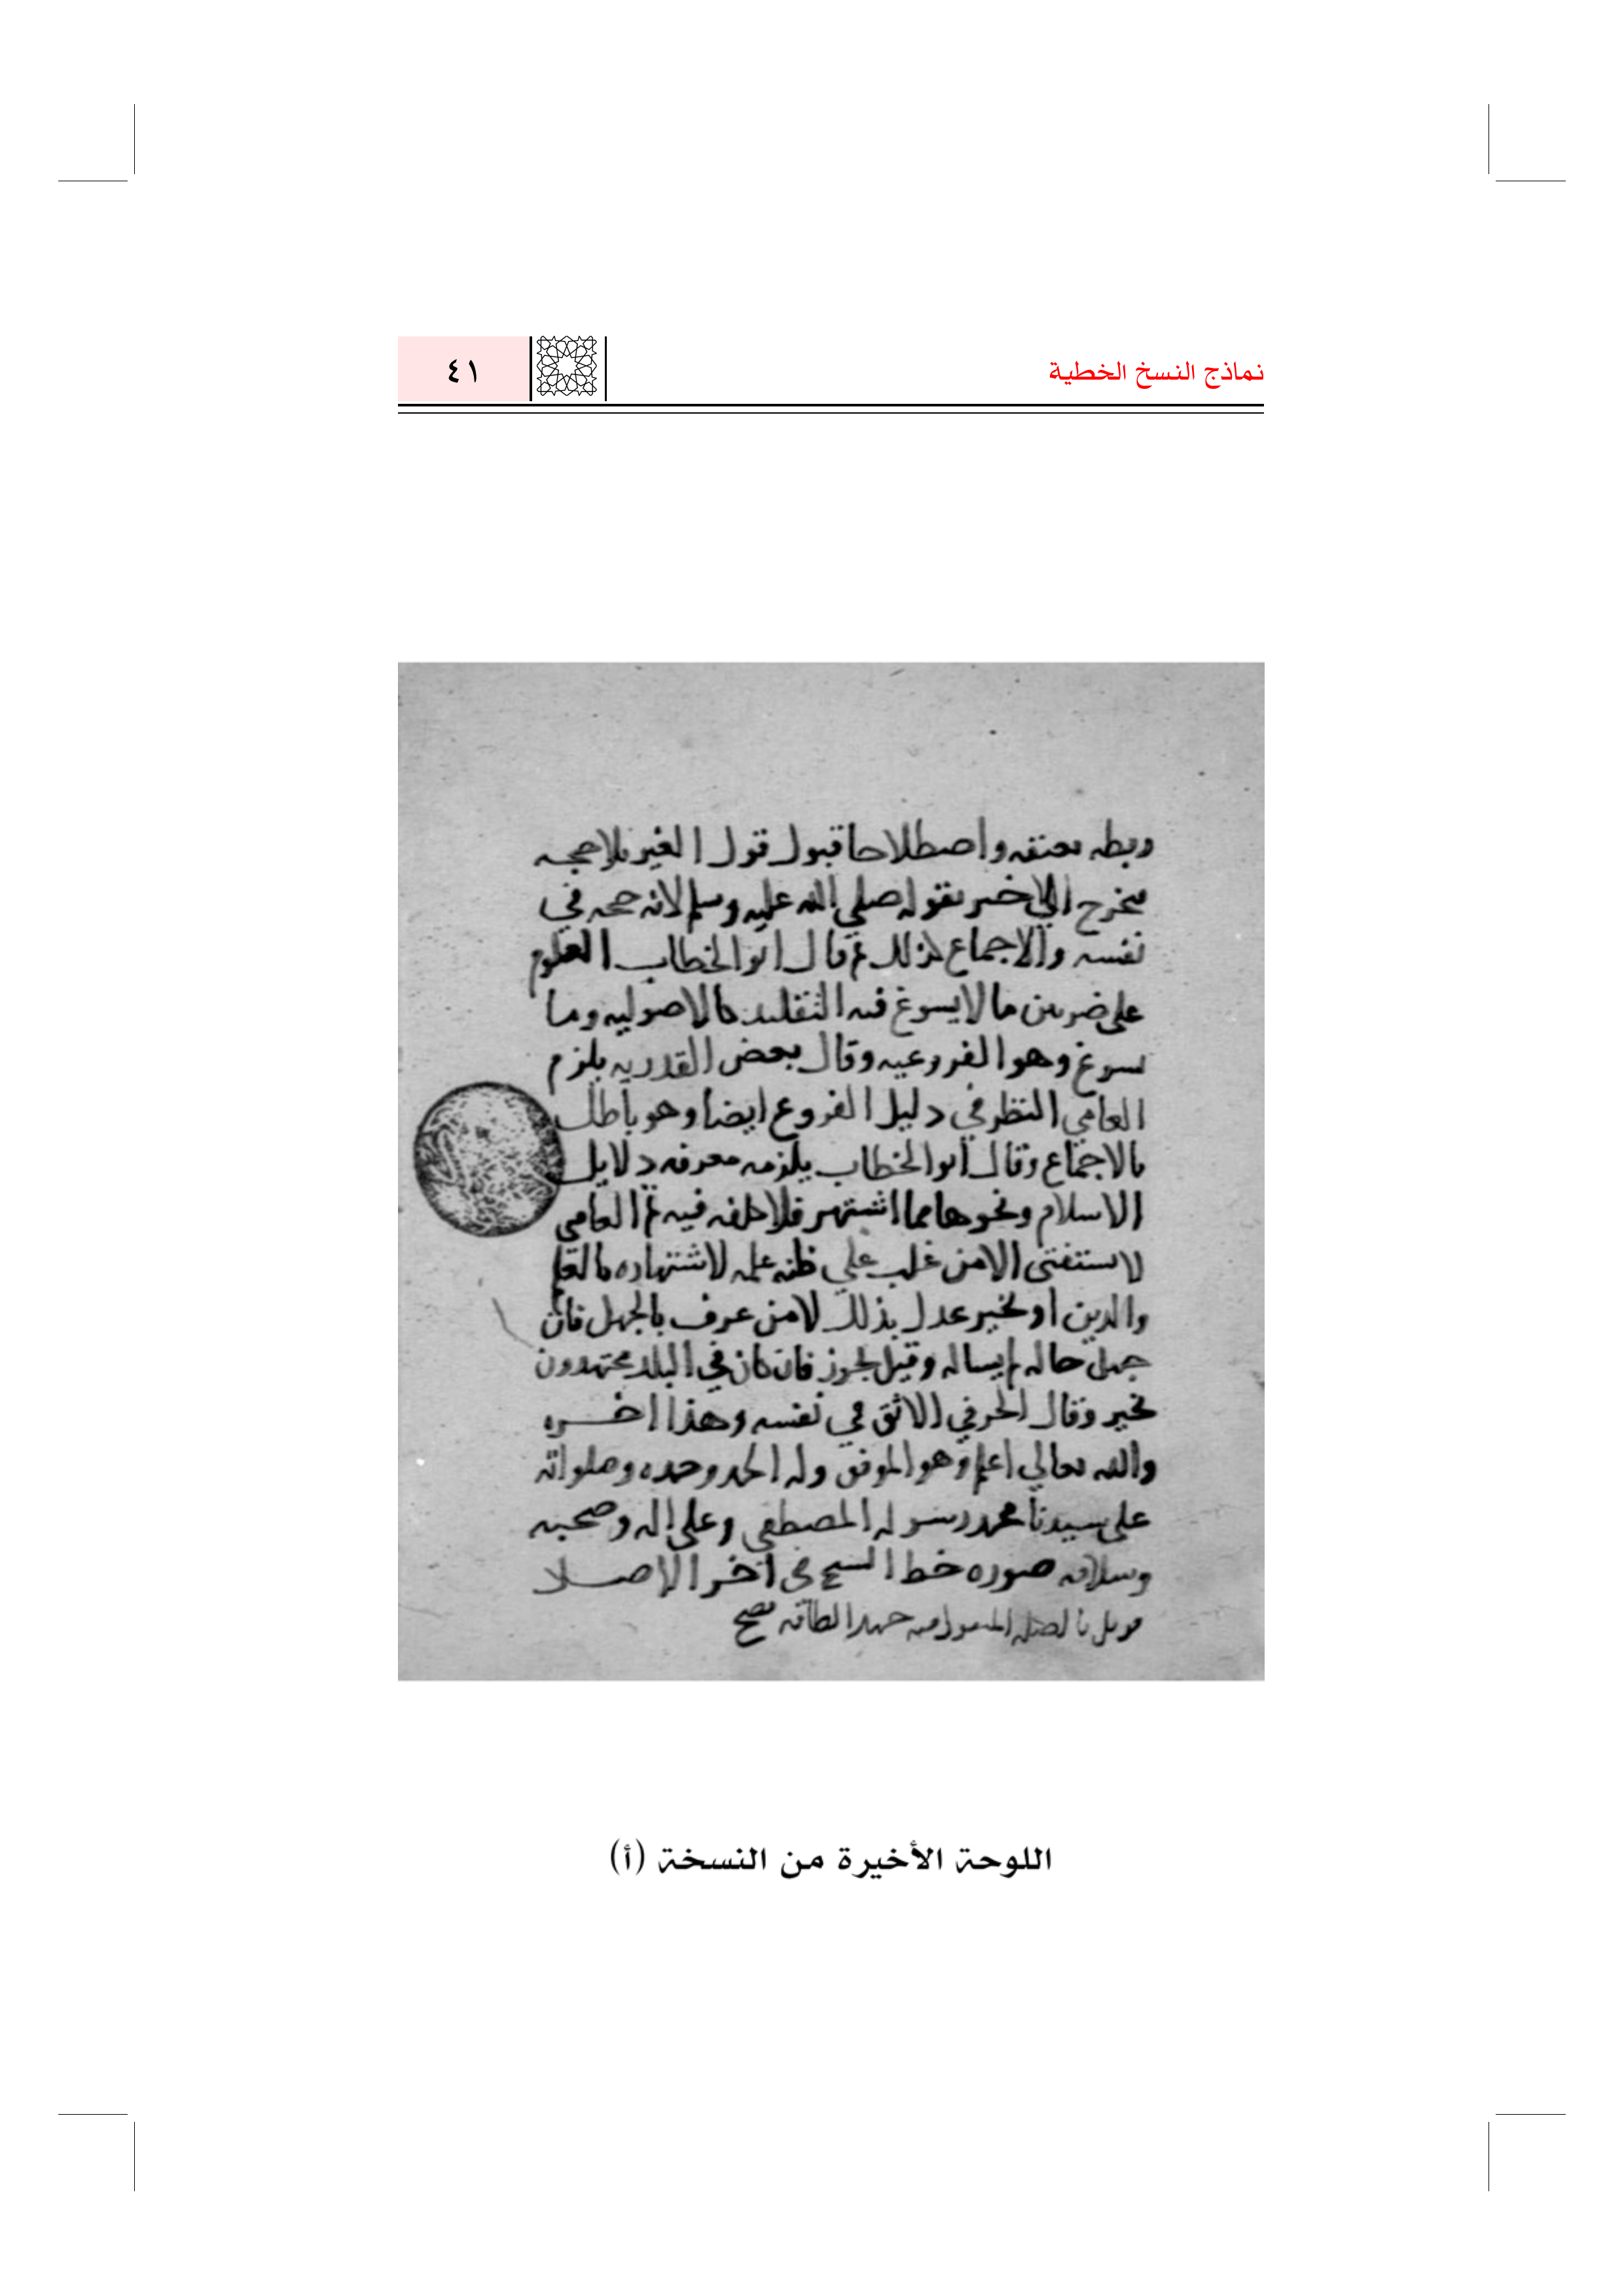 نماذج النسخ الخطية
٤١
وربطه بعنقه واصطلاحا قبول قول الغير بلا حجه
فيخرج الاخبر بقوله صلي الله عليه وسلم لانه حجه في
نفسه والاجماع كذلك ثم قال ابو الخطاب العلوم
علي ضربين ما لا يسوغ فيه التقليد كالاصوليه وما
يسوغ وهو الفروعيه وقال بعض القدريه يلزم
العامي النظر في دليل الفروع ايضا وهو باطل
بالاجماع وقال ابو الخطاب يلزمه معرفه دلايل
الاسلام ونحوها مما اشتهر فلا كلفه فيه ثم العامي
لا يستفتي الا من غلب علي ظنه علمه لاشتهاره بالعلم
والدين او بخبر عدل بذلك لا من عرف بالجهل فان
جهل حاله لم يساله وقيل يجوز فان كان في البلد مجتهدون
تخير وقال الخرقي الاوثق في نفسه وهذا اخره
والله تعالي اعلم وهو الموفق وله الحمد وحده وصلواته
علي سيدنا محمد رسوله المصطفي وعلي اله وصحبه
وسلامه صوره خط الشيخ في اخر الاصل
قوبل باصله المنقول منه جهد الطاقه فصح
اللوحة الأخيرة من النسخة (أ)